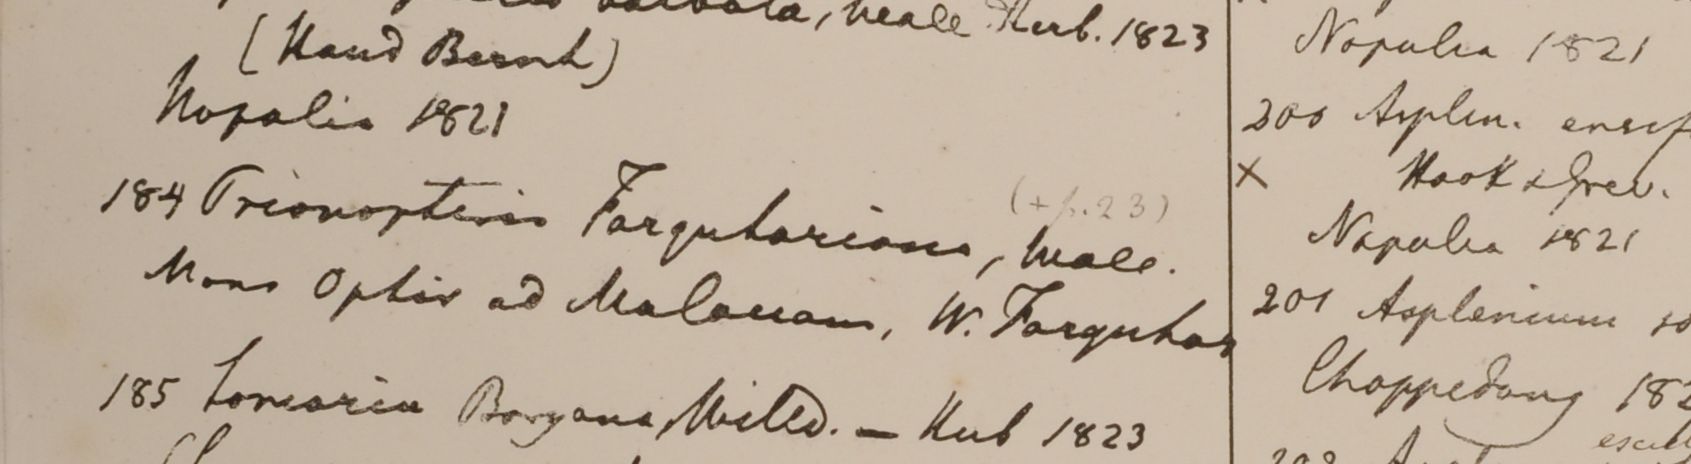 barbata, Wall. Herb. 1823
(Haud Bernh)
Napalia 1821
(+ p. 23)
184 Prionopteris Farquhariana, Wall.
Mons Ophir ad Malaccam, W. Farquhar
185 Lomaria Boryana, Willd. — Herb 1823
Napalia 1821
200 Asplen. ensif
× Hook & Grev.
Napalia 1821
201 Asplenium
Choppedong 182